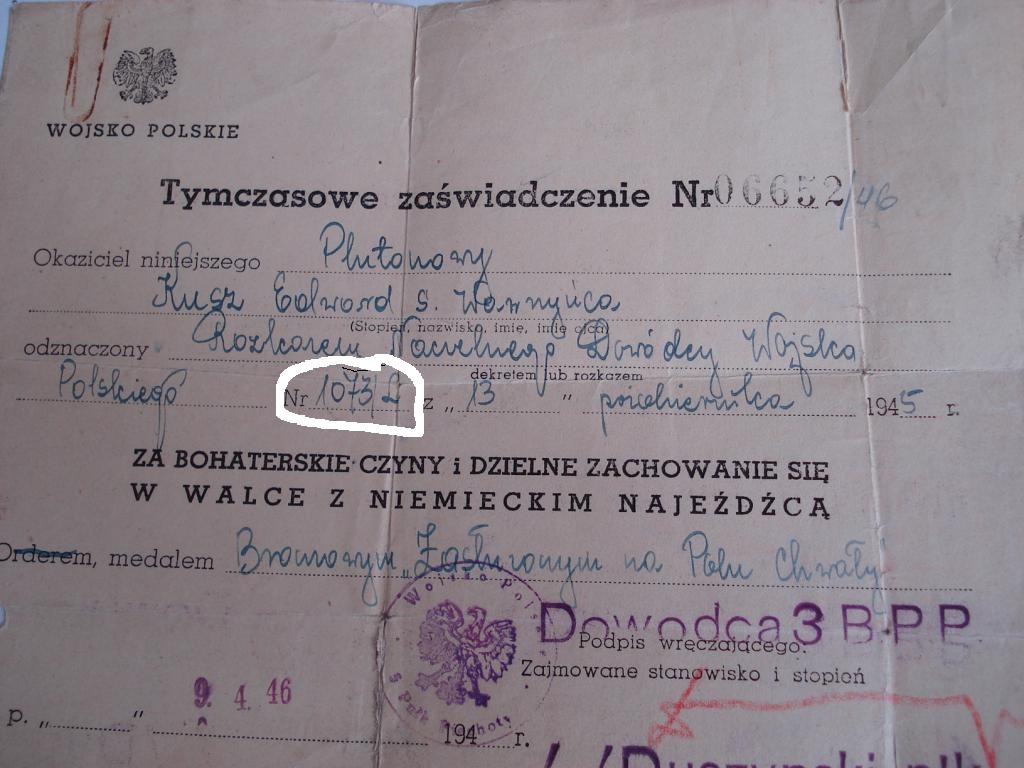 WOJSKO POLSKIE
Tymczasowe zaświadczenie Nr 06652/46
Okaziciel niniejszego Plutonowy
Kusz Edward s. Wawrzyńca
(Stopień, nazwisko, imię, imię ojca)
odznaczony Rozkazem Naczelnego Dowódcy Wojska
dekretem lub rozkazem
Polskiego Nr 1073/L z „ 13 " październilka 1945 r.
ZA BOHATERSKIE CZYNY i DZIELNE ZACHOWANIE SIĘ
W WALCE Z NIEMIECKIM NAJEŹDŹCĄ
Orderem, medalem Bronowym „Zasłużonym na Polu Chwały"
Wojsko Polsk
Dowodca 3 B P P
Podpis wręczającego:
Zajmowane stanowisko i stopień
9. 4. 46
p. „ " 194 r.
5 Pułk